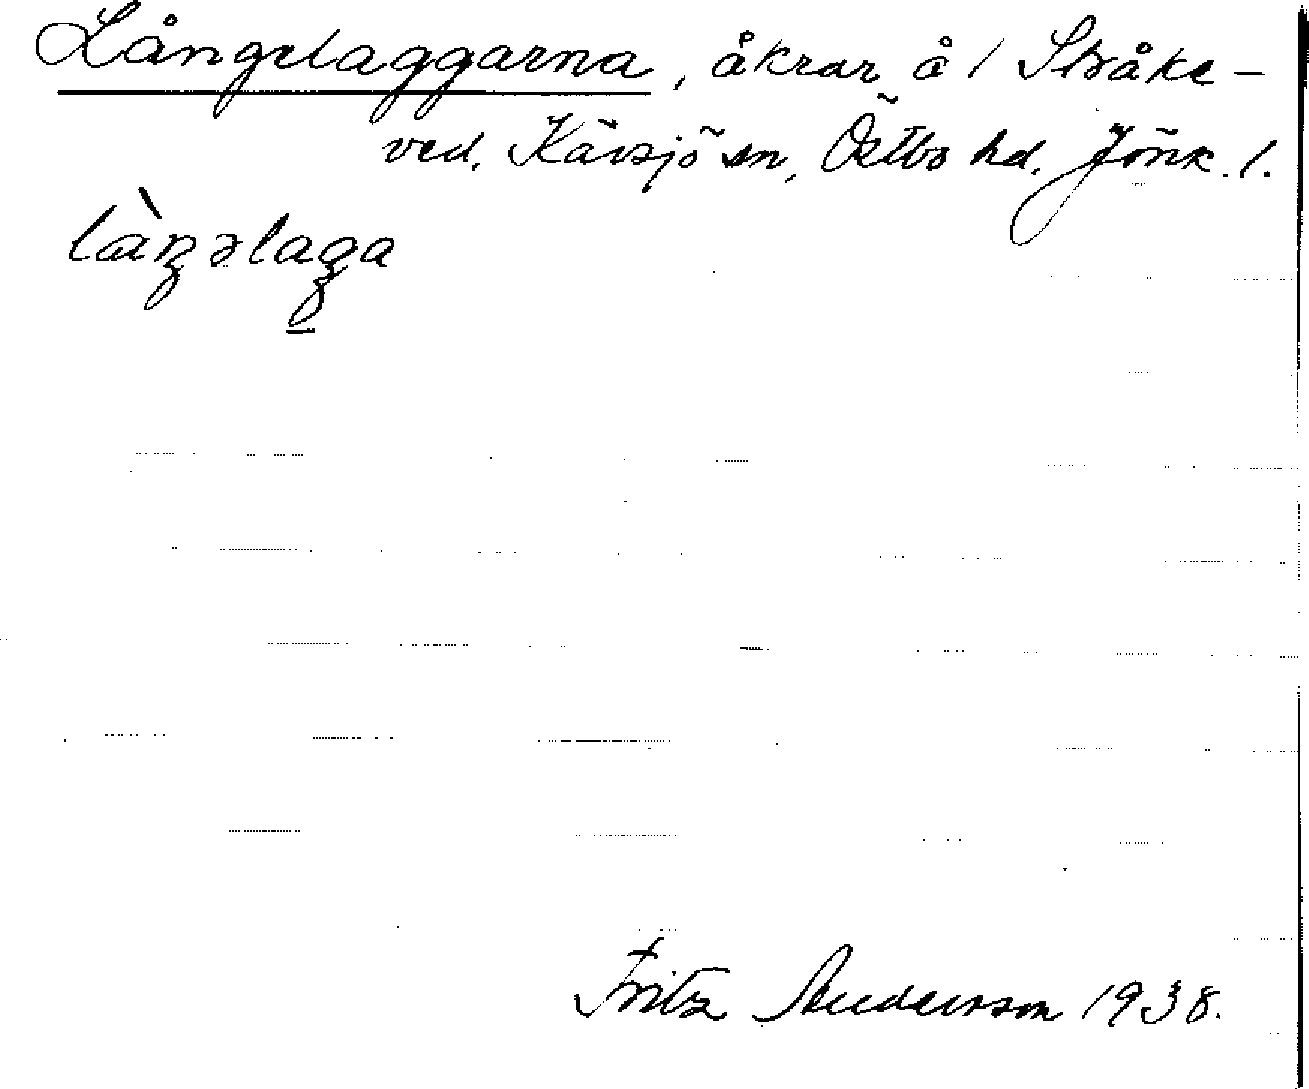 Långelaggarna, åkrar å / Stråke-
ved, Kävsjö sn, Östbo hd. Jönk. l.
Fritz Andersson 1938.